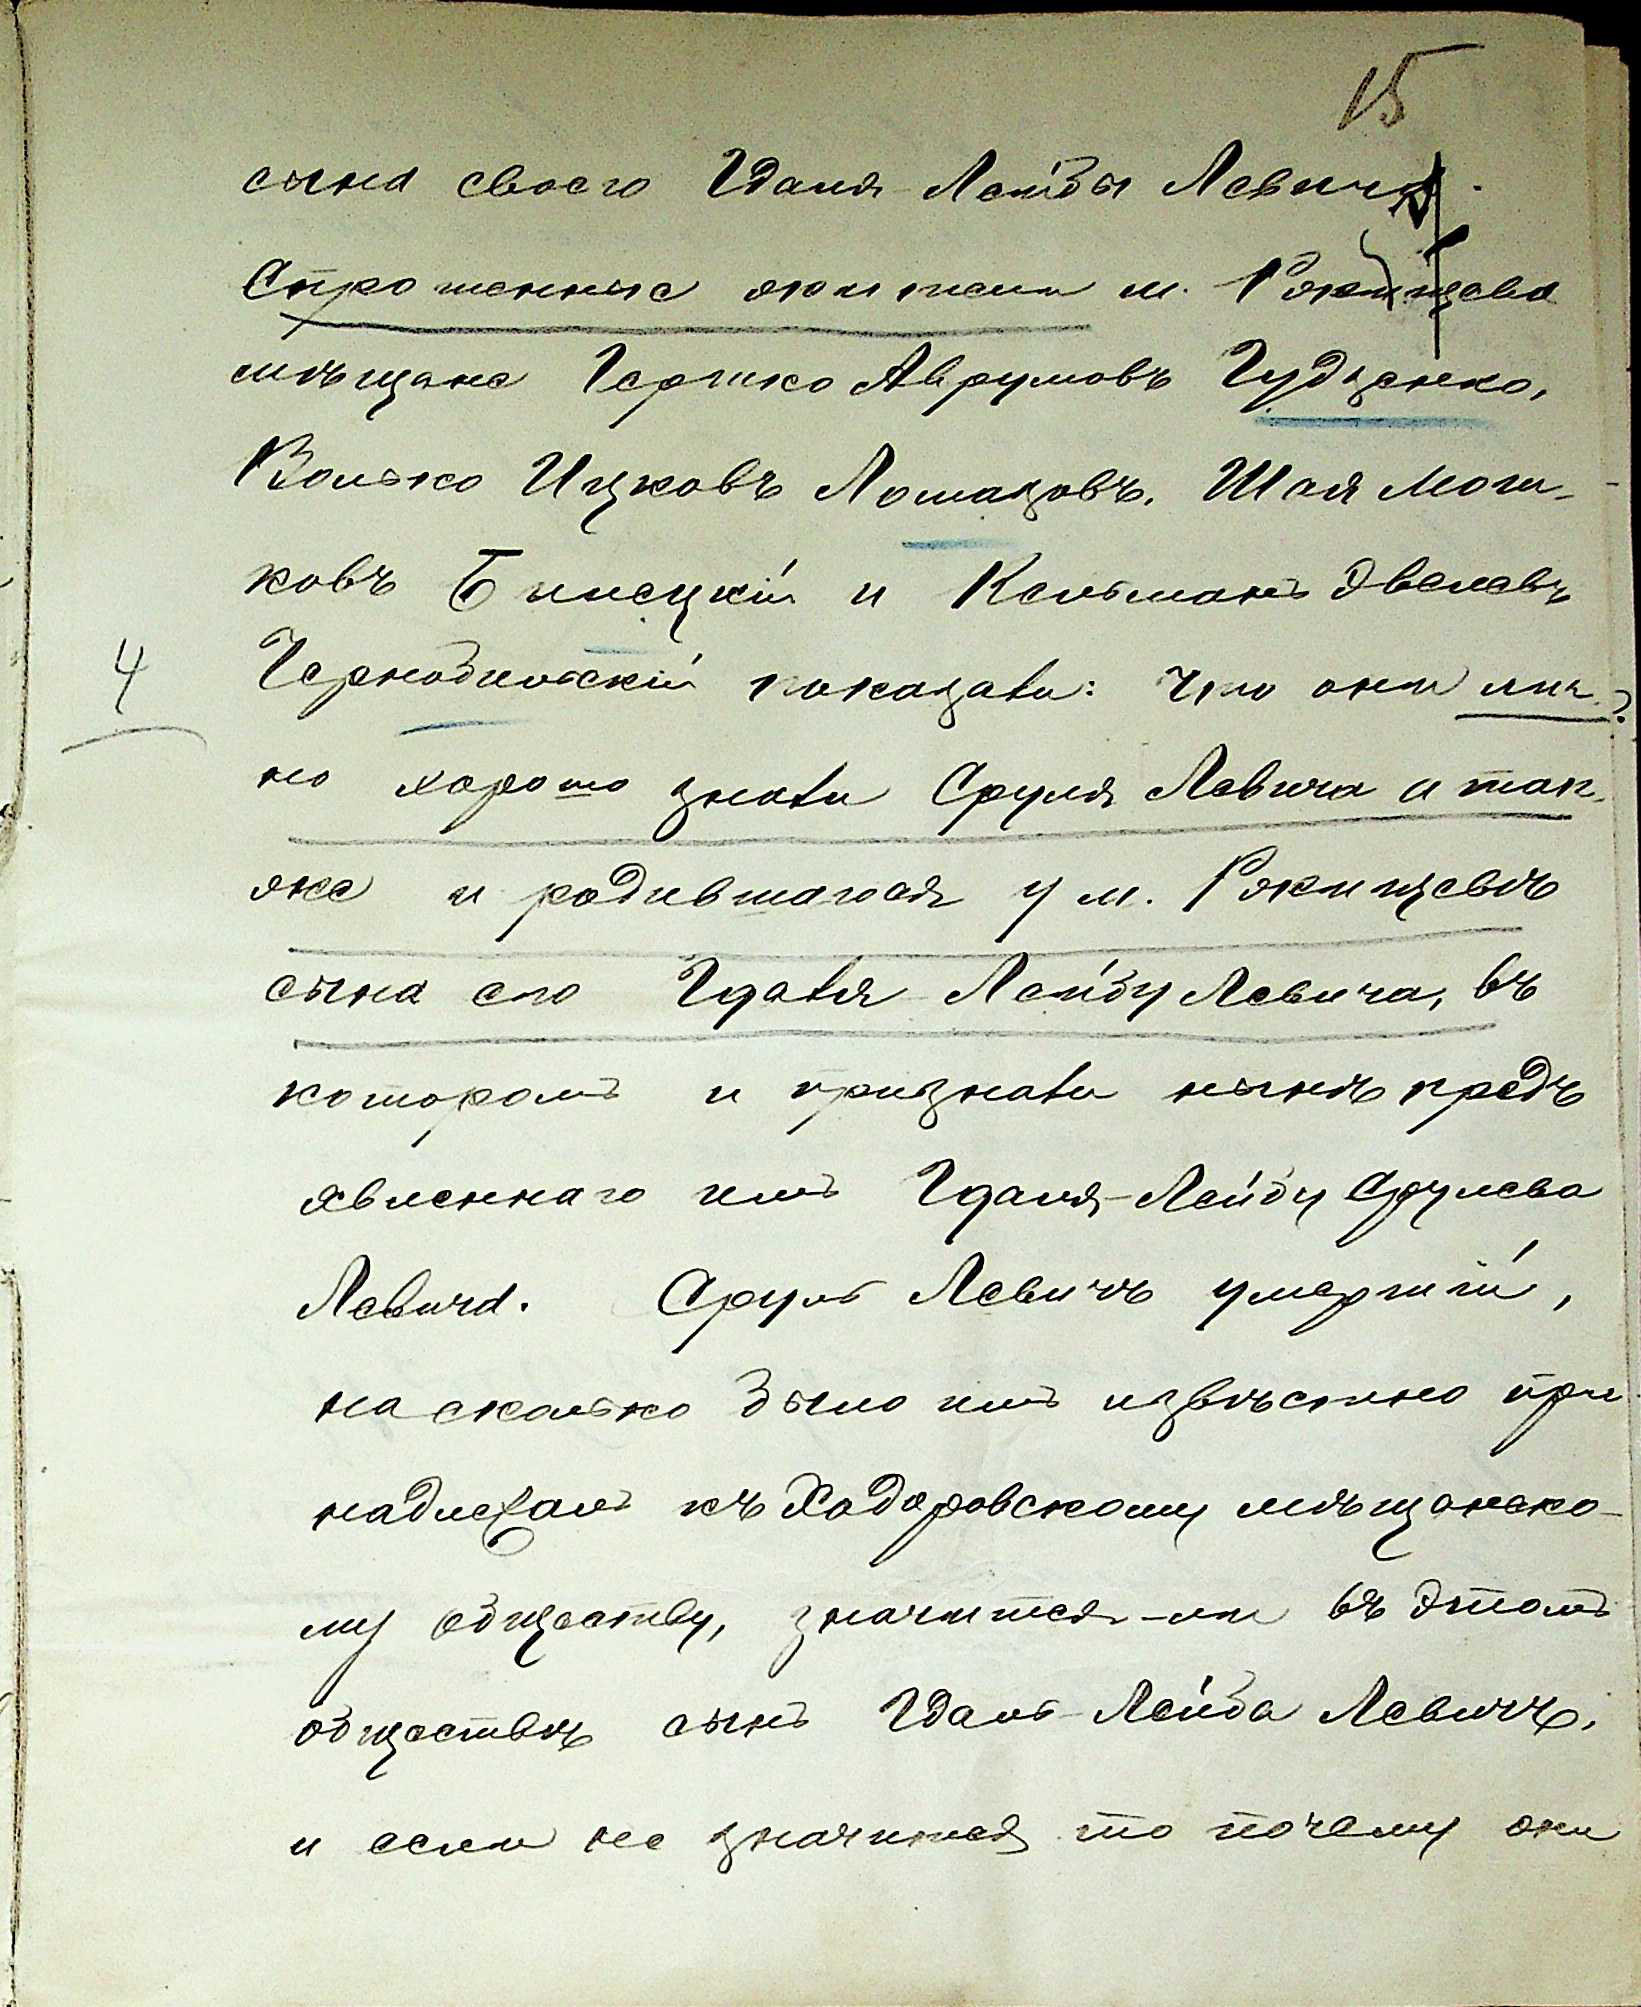 15
сына своего Гдаля Лейбы Левича.
Спрошенные жители м. Рокитова
мѣщане Гершко Аврумовъ Гудзенко,
Волько Ицковъ Ломазовъ, Шая Мош-
ковъ Билецкій и Кельманъ Эвелевъ
4 Чернобильскій показали: что они лич-?
но хорошо знали Сруля Левича и так-
же и родившагося у м.
сына его Гдаля Лейбу Левича, въ
которомъ и признали нынѣ предъ
явленнаго имъ Гдаля-Лейбу Срулева
Левича. Сруль Левичъ умершій,
насколько было имъ извѣстно при
надлежалъ къ Ходоровскому мѣщанско-
му обществу, значится-ли въ этомъ
обществѣ сынъ Гдаль-Лейба Левичъ,
и если не значится то почему они